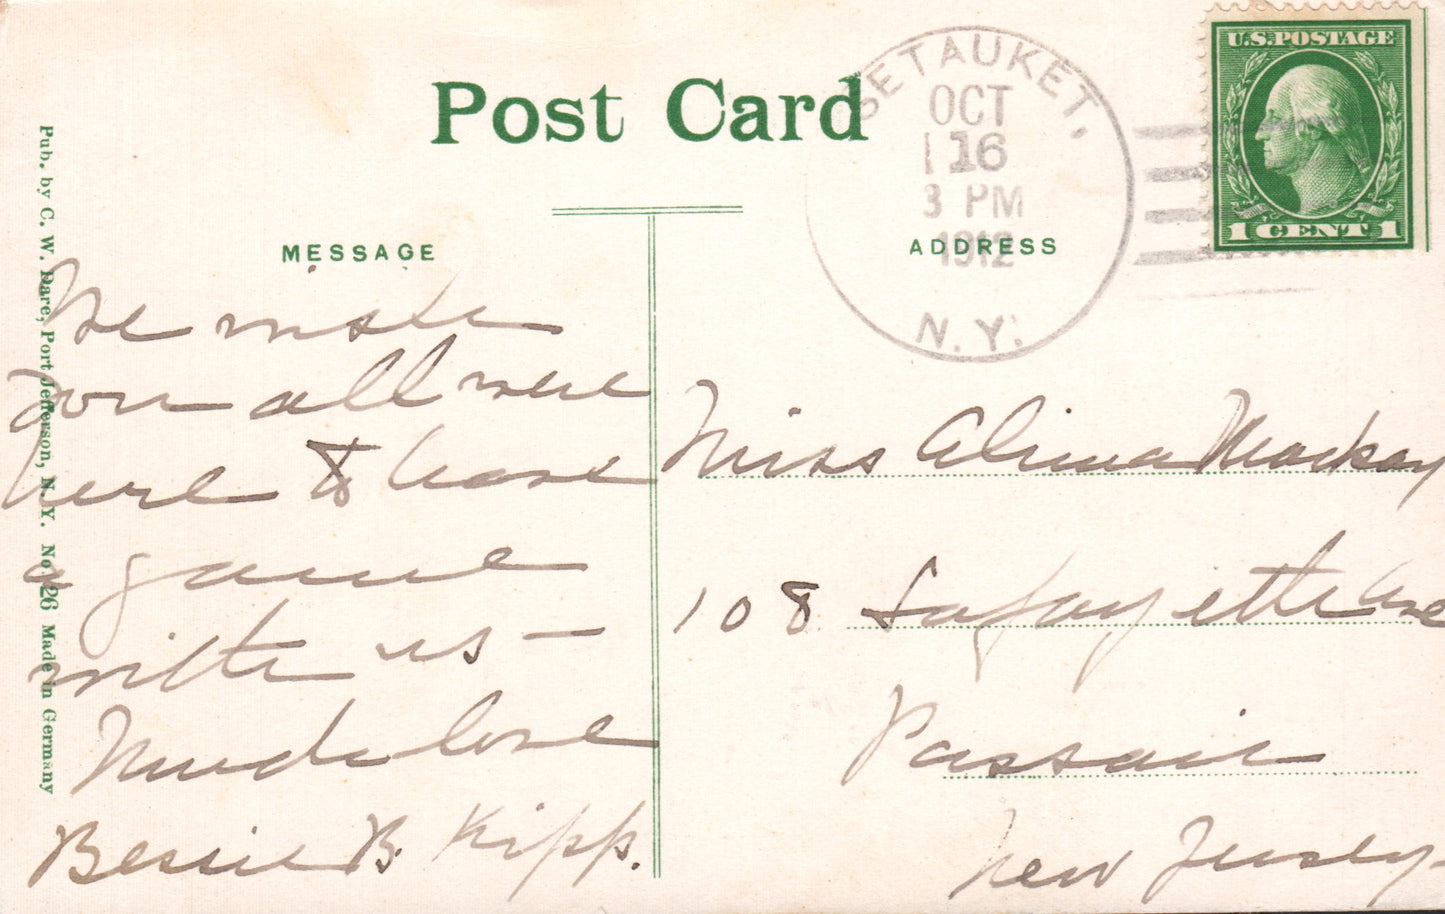 Post Card
SETAUKET,
OCT
16
3 PM
1912
N.Y.
U.S. POSTAGE
1 CENT 1
MESSAGE
ADDRESS
Pub. by C. W. Dare, Port Jefferson, N.Y. No. 26 Made in Germany
We wish
you all were
here to have
a game
with us —
Much love
Bessie B. Kipp.
Miss Mackay
108 Lafayette Ave
Passaic
New Jersey